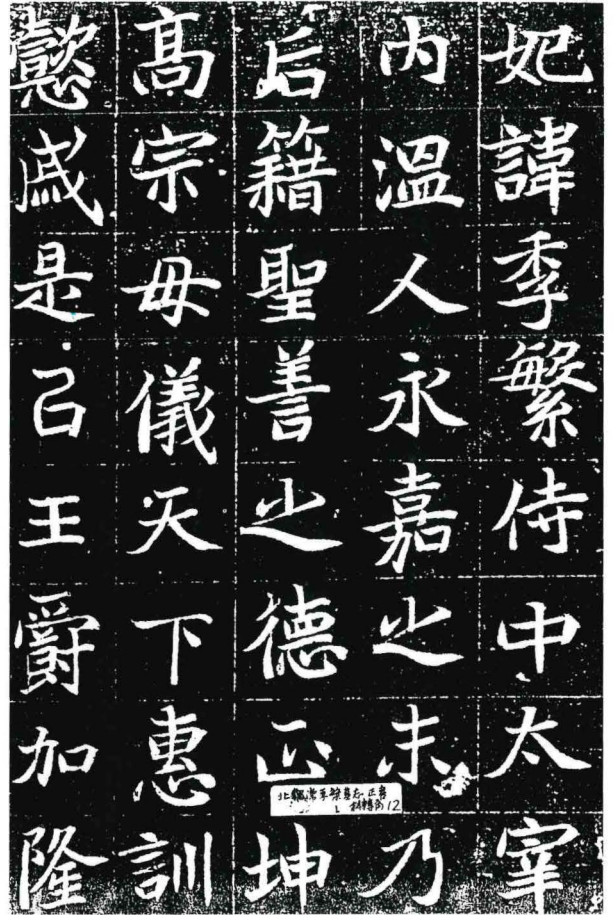 妃諱季繁侍中太宰
内溫人永嘉之末乃
后籍聖善之德正坤
高宗毋儀天下惠訓
懿戚是以王爵加隆
北魏 12